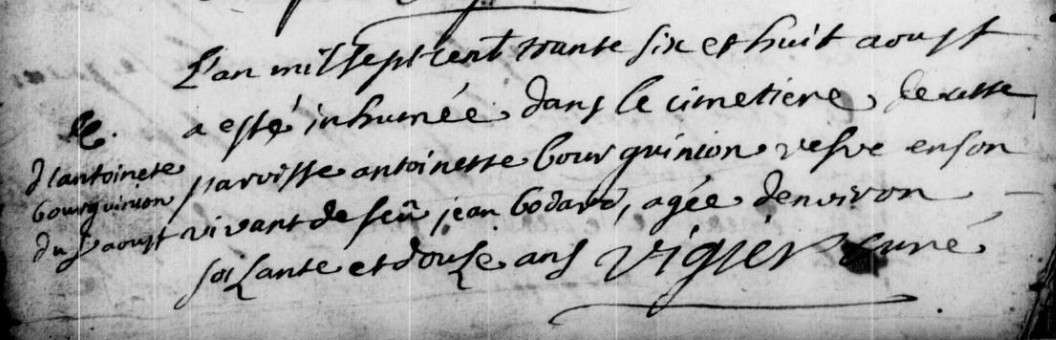 L'an mil sept cent trante six et huit aoust
a esté inhumée dans le cimetiere de cette
parroisse antoinette bourguinion vefve en son
vivant de feü jean bodard, agée d'environ
soixante et douze ans Vigier curé
d'antoinete
bourguinion
du 8 aoust